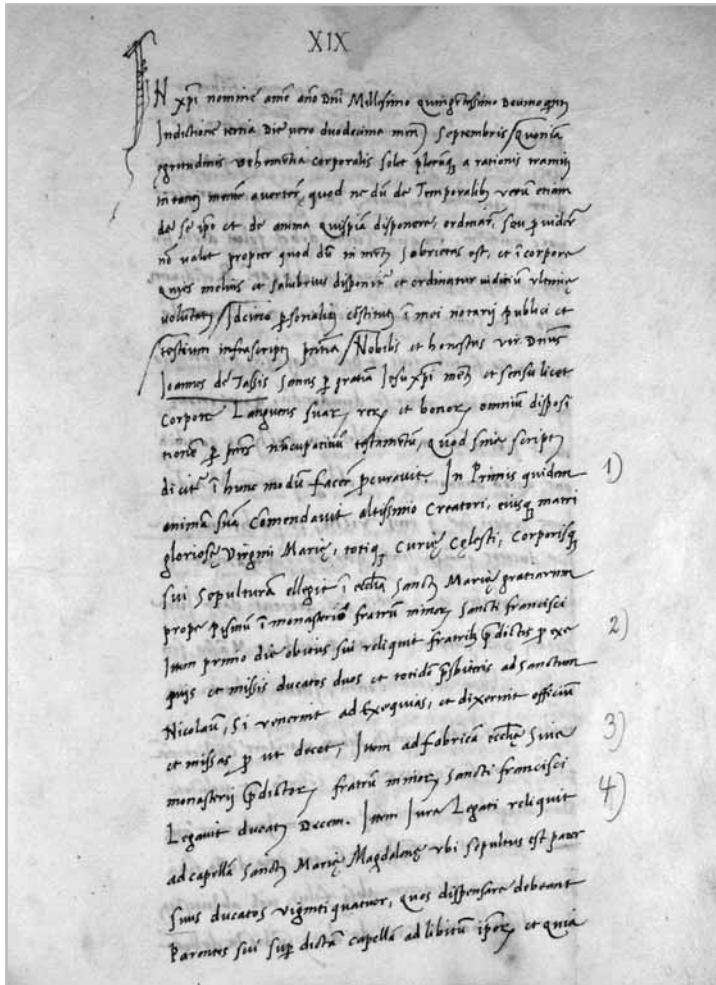 XIX
IN xpi nomine ame año Dñi Millesimo quingetessimo Decimo
Indictione tertia Die vero duodecima Septembris / Quoniã
ęgrotudinis vehementia corporalis solet plerũq a rationis
mentẽ averterẽ, quod ne dũ de Temporalibꝫ verũ etiam
de se ipo et de anima quispiã disponere, ordinarẽ, seu ꝓ
nõ valet propter quod dũ in sobrietas est, et ĩ corpore
quies melius et salubrius disponit et ordinatur ultimę
voluntatꝭ / Idcirco cõstitutꝰ ĩ mei notarij publici et
testium infrascriptꝭ / Nobilis et honestus vir Dnus
Ioannes de Tassis sanus ꝑ gratiã Iesu xpi et sensu licet
corpore Languens suarꝝ rerꝝ et bonorꝝ omniũ disposi
tionẽ ꝑ nũcupativũ testamẽtũ, quod sine scriptꝭ
dicitꝰ ĩ hunc modũ facerẽ ꝓcuravit. In Primis quidem
1)
animã suã Comendavit altissimo Creatori, eiusqꝫ matri
gloriosę Virgini Marię, totiqꝫ Curię Cęlesti, Corporisqꝫ
sui Sepulturã ellegit ĩ ecclĩa Sanctꝭ Marię gratiarum
prope Pismũ ĩ monasterio fratrũ minorꝝ Sancti francisci
Item primo die obitus sui reliquit fratribꝫ p̃dictis ꝓ exe
2)
quijs et missis ducatos duos et totidẽ p̃sbiteris ad Sanctum
Nicolaũ, Si venerint ad Exequias, et dixerint officiũ
et missas ꝓ ut decet, Item ad fabricã ecclĩę Sive
3)
monasterij p̃dictorꝝ fratrũ minorꝝ Sancti francisci
Legavit ducatꝭ Decem. Item Iure Legati reliquit
4)
ad capellã Sanctꝭ Marię Magdalenę ubi sepultus est pater
suus ducatos vigintiquatuor, quos dispensare debeant
Parentes sui suꝑ dictã capellã ad libitũ ipsorꝝ et quia